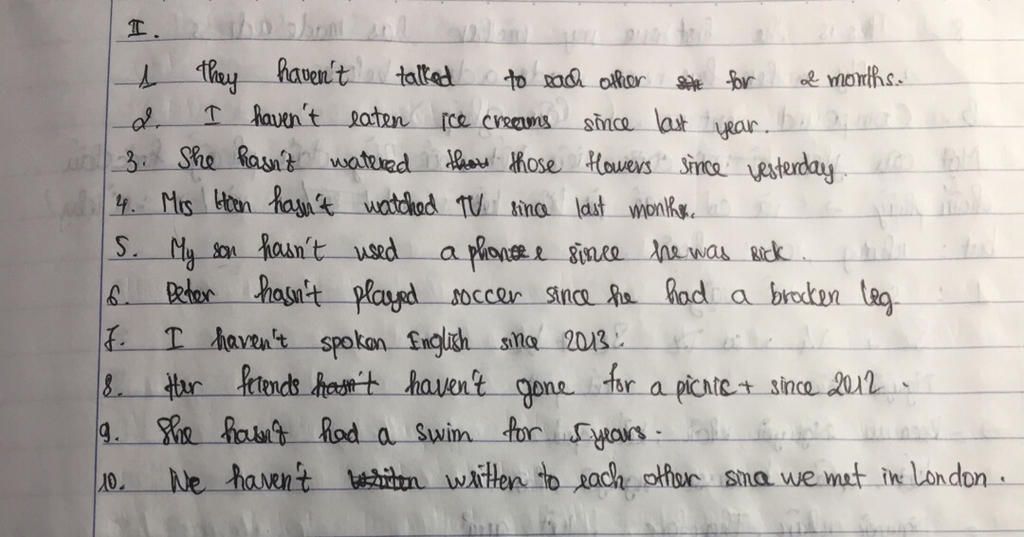 II.
1 They haven't talked to each other for 2 months.
2. I haven't eaten ice creams since last year.
3. She hasn't watered those flowers since yesterday.
4. Mrs Hoen hasn't watched TV since last month.
5. My son hasn't used a phone since he was sick.
6. Peter hasn't played soccer since he had a brocken leg.
7. I haven't spoken English since 2013.
8. Her friends hasn't haven't gone for a picnic + since 2012.
9. She hasn't had a swim for 5 years.
10. We haven't written to each other since we met in London.